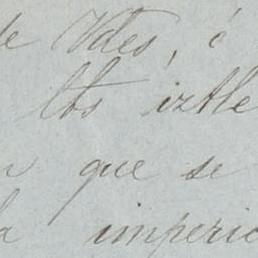 de Vdes, é
los
que se
la imperio